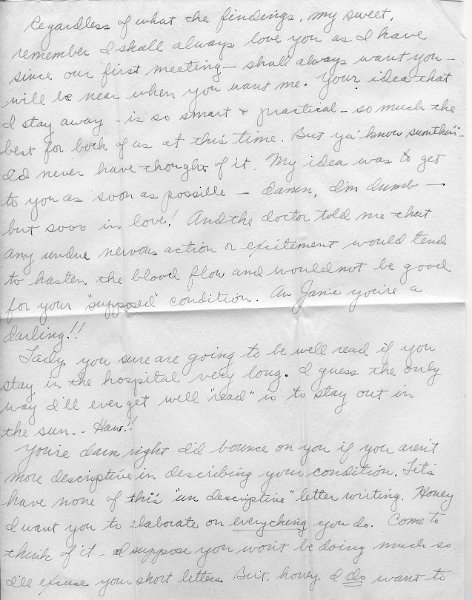 Regardless of what the findings, my sweet,
remember I shall always love you as I have
since our first meeting - shall always want you -
will be near when you want me. Your idea that
I stay away - is so smart & practical - so much the
best for both of us at this time. But ya' know sumthin'-
I'd never have thought of it. My idea was to get
to you as soon as possible - damn, I'm dumb -
but sooo in love! And the doctor told me that
any undue nervous action or excitement would tend
to hasten the blood flow and would not be good
for your "supposed" condition. Aw Janie you're a
darling!!
Lady, you sure are going to be well read if you
stay in the hospital very long. I guess the only
way I'll ever get well "read" is to stay out in
the sun. . Haw!!
You're darn right I'd bounce on you if you aren't
more descriptive in describing your condition. Let's
have none of this "un descriptive" letter writing. Honey
I want you to elaborate on everything you do. Come to
think of it - I suppose you won't be doing much so
I'll excuse your short letters. But, honey I do want to